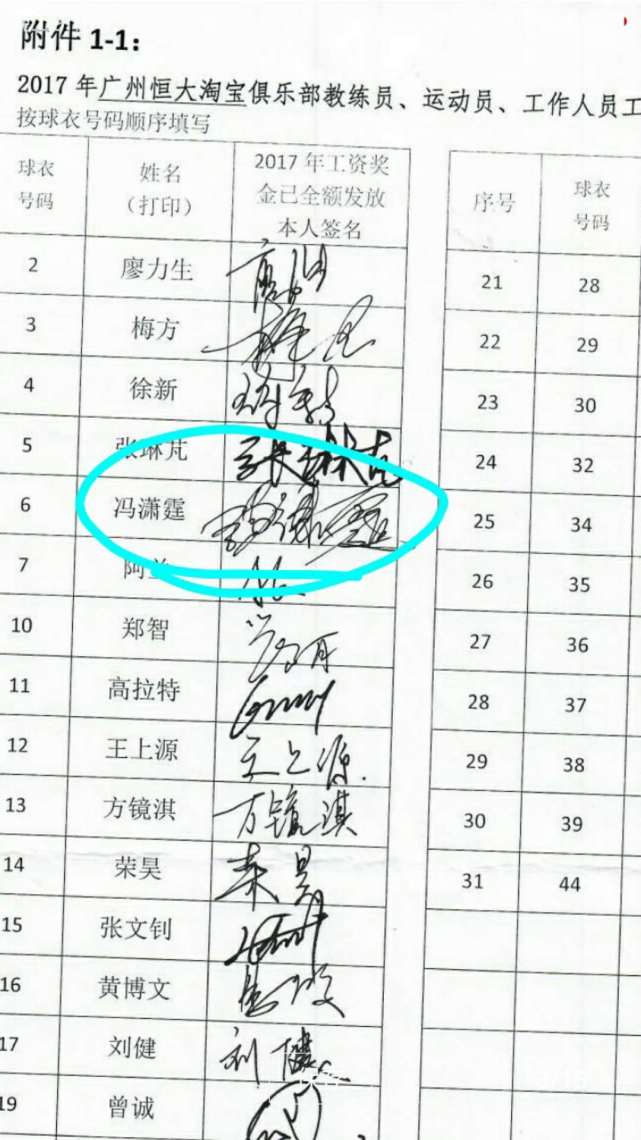 附件 1-1：
2017 年广州恒大淘宝俱乐部教练员、运动员、工作人员工
按球衣号码顺序填写
球衣号码 姓名（打印） 2017 年工资奖金已全额发放本人签名 序号 球衣号码
2 廖力生 21 28
3 梅方 22 29
4 徐新 23 30
5 张琳芃 张琳芃 24 32
6 冯潇霆 冯潇霆 25 34
7 阿兰 26 35
10 郑智 27 36
11 高拉特 28 37
12 王上源 王上源 29 38
13 方镜淇 方镜淇 30 39
14 荣昊 荣昊 31 44
15 张文钊
16 黄博文
17 刘健 刘健
19 曾诚